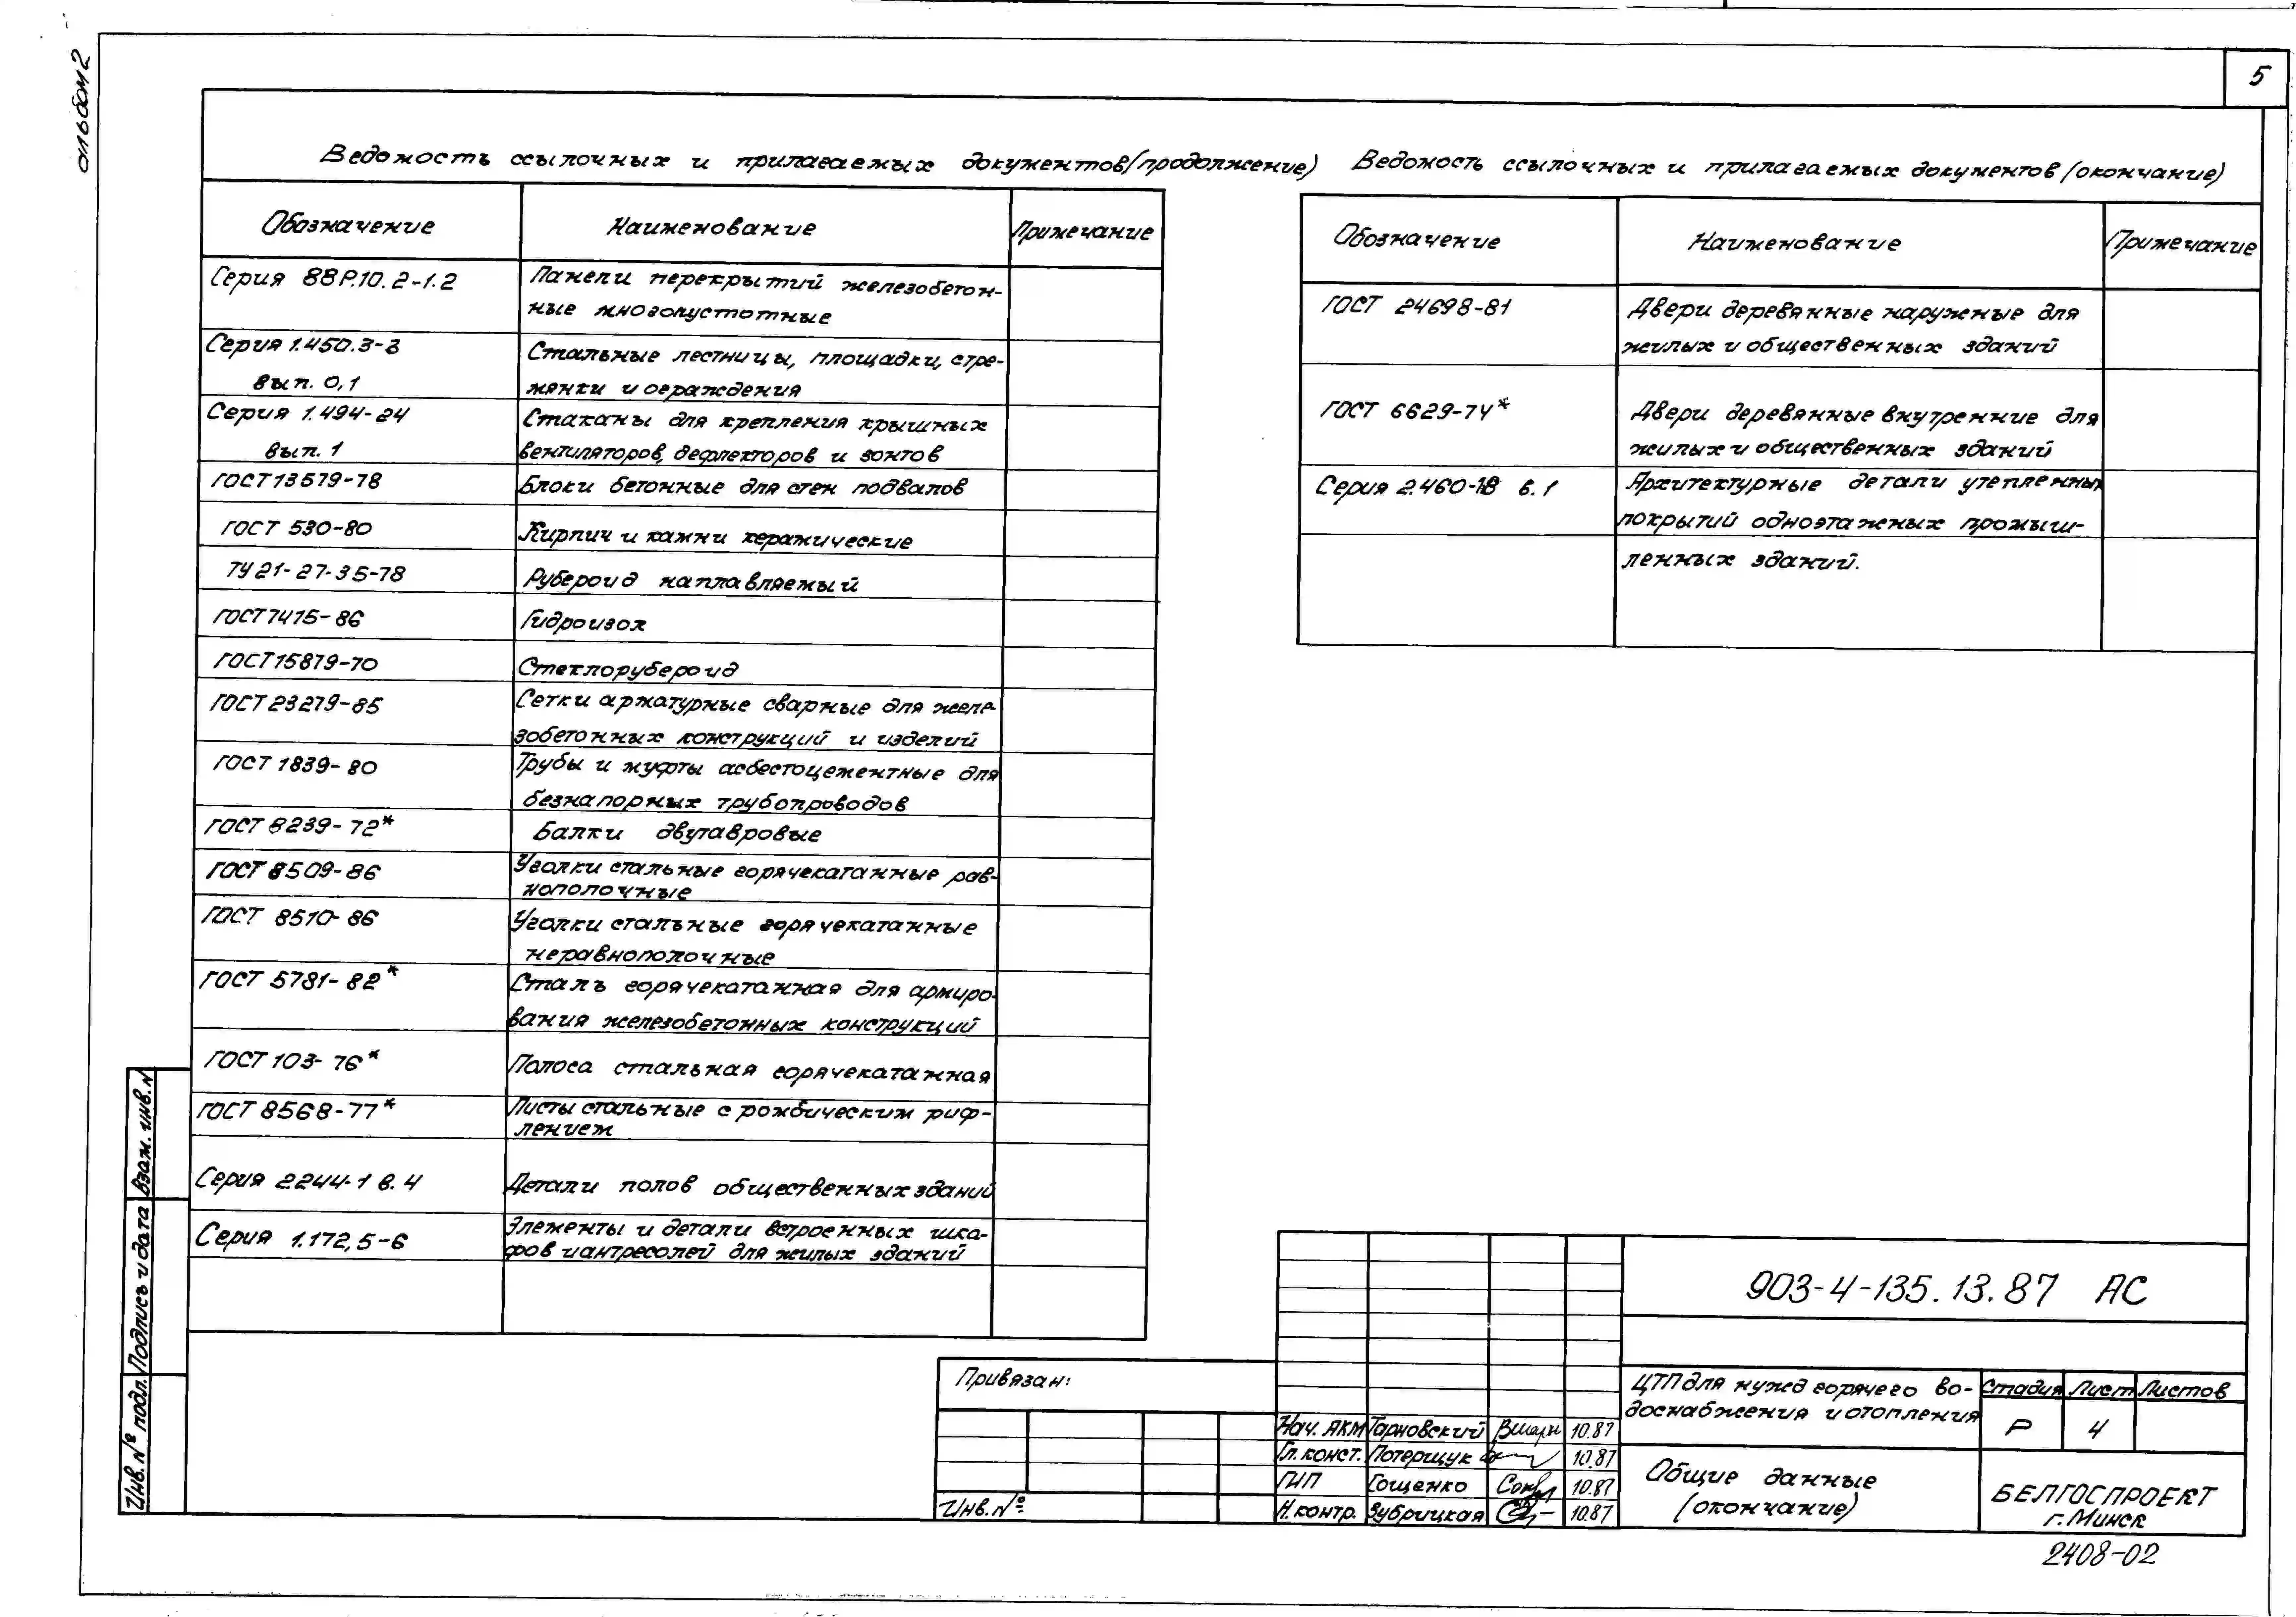 альбом 2
5
Ведомость ссылочных и прилагаемых документов (продолжение)
Обозначение Наименование Примечание
Серия 88Р.10.2-1.2 Панели перекрытий железобетон-
ные многопустотные
Серия 1.450.3-3 Стальные лестницы, площадки, стре-
вып. 0,1 мянки и ограждения
Серия 1.494-24 Стаканы для крепления крышных
вып. 1 вентиляторов, дефлекторов и зонтов
ГОСТ 13579-78 Блоки бетонные для стен подвалов
ГОСТ 530-80 Кирпич и камни керамические
ТУ 21-27-35-78 Рубероид наплавляемый
ГОСТ 7415-86 Гидроизол
ГОСТ 15879-70 Стеклорубероид
ГОСТ 23279-85 Сетки арматурные сварные для желе-
зобетонных конструкций и изделий
ГОСТ 1839-80 Трубы и муфты асбестоцементные для
безнапорных трубопроводов
ГОСТ 8239-72* Балки двутавровые
ГОСТ 8509-86 Уголки стальные горячекатанные рав-
нополочные
ГОСТ 8510-86 Уголки стальные горячекатанные
неравнополочные
ГОСТ 5781-82* Сталь горячекатанная для армиро-
вания железобетонных конструкций
ГОСТ 103-76* Полоса стальная горячекатанная
ГОСТ 8568-77* Листы стальные с ромбическим риф-
лением
Серия 2.244-1 в.4 Детали полов общественных зданий
Серия 1.172,5-6 Элементы и детали встроенных шка-
фов и антресолей для жилых зданий
Ведомость ссылочных и прилагаемых документов (окончание)
Обозначение Наименование Примечание
ГОСТ 24698-81 Двери деревянные наружные для
жилых и общественных зданий
ГОСТ 6629-74* Двери деревянные внутренние для
жилых и общественных зданий
Серия 2.460-18 в.1 Архитектурные детали утепленных
покрытий одноэтажных промыш-
ленных зданий.
Взам. инв. №
Подпись и дата
Инв. № подл.
Привязан:
Инв. №
Нач. АКМ Тарновский 10.87
Гл. конст. Потерщук 10.87
ГИП Гощенко 10.87
Н. контр. Зубрицкая 10.87
903-4-135.13.87 АС
ЦТП для нужд горячего во-
доснабжения и отопления
Стадия Лист Листов
Р 4
Общие данные
(окончание)
БЕЛГОСПРОЕКТ
г. Минск
2408-02